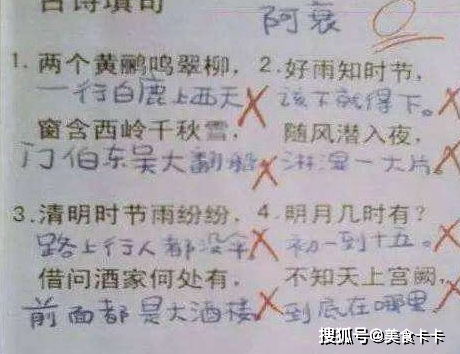 古诗填句
阿衰
1. 两个黄鹂鸣翠柳,
一行白鹿上西天
窗含西岭千秋雪,
门伯东吴大翻船
2. 好雨知时节,
该下就得下。
随风潜入夜,
淋湿一大片。
3. 清明时节雨纷纷,
路上行人都没伞
借问酒家何处有,
前面都是大酒楼
4. 明月几时有?
初一到十五。
不知天上宫阙,
到底在哪里.
搜狐号@美食卡卡